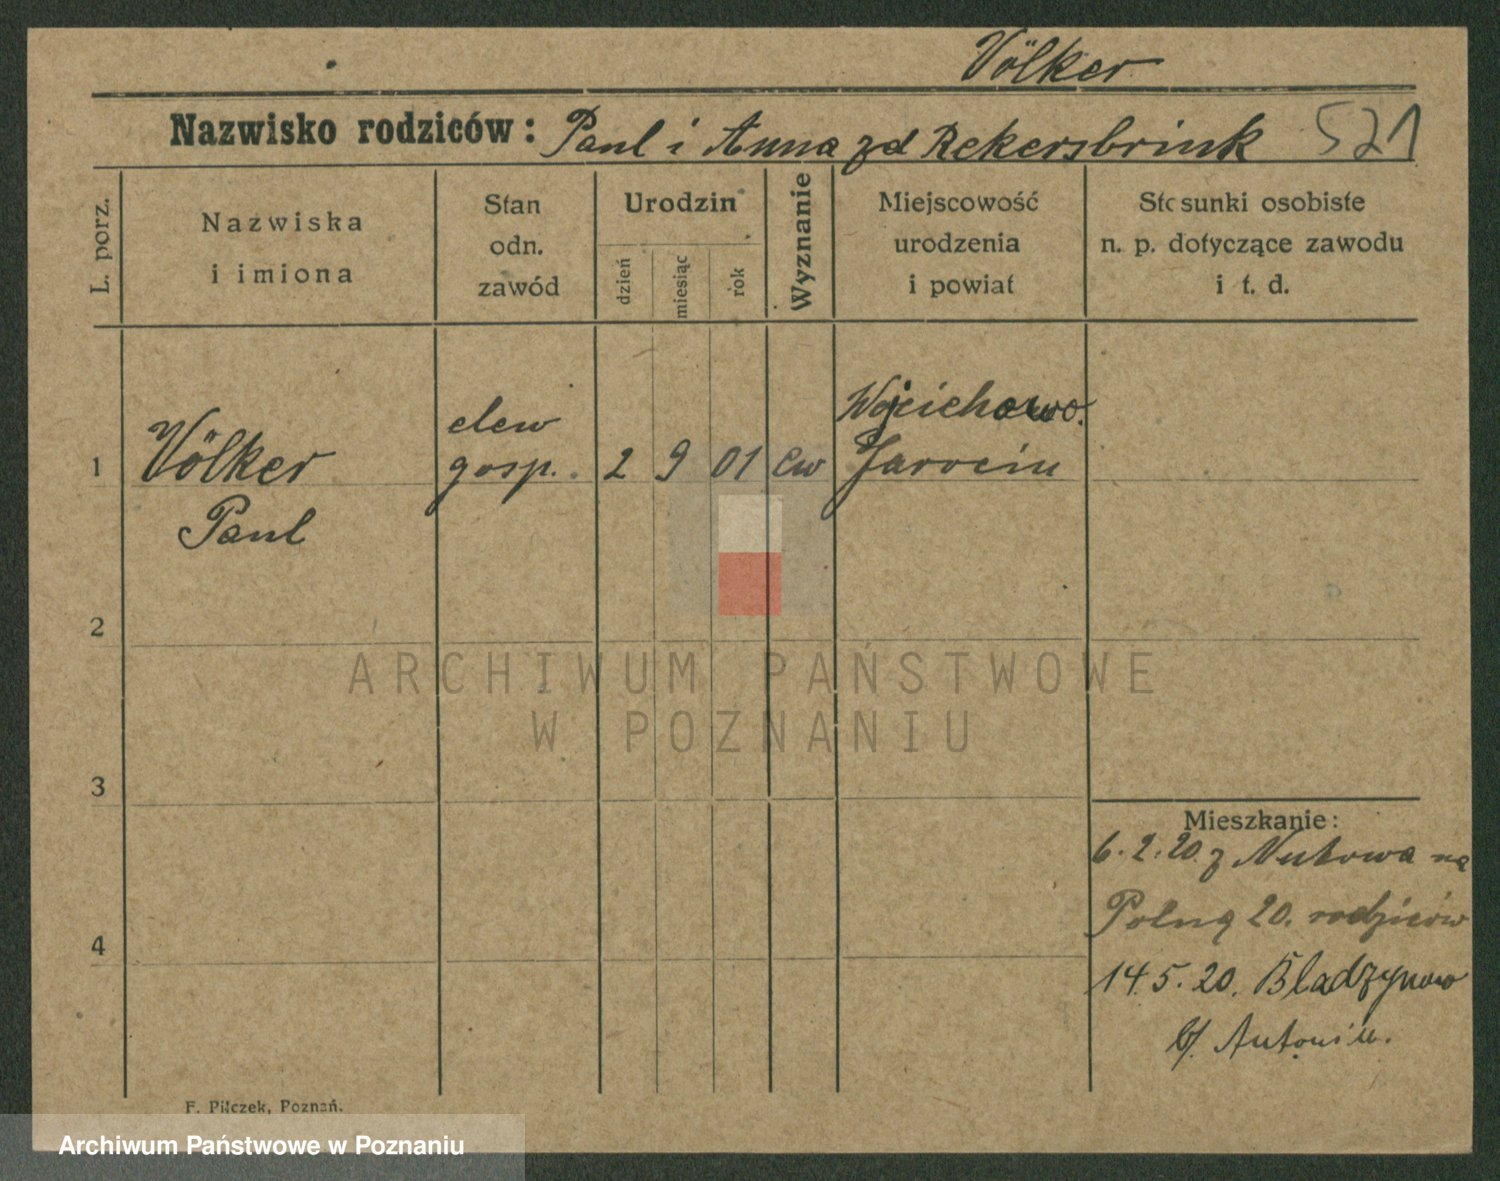 Völker
Nazwisko rodziców: Paul i Anna zd Rekersbrink 521
L. porz.
Nazwiska
i imiona
Stan
odn.
zawód
Urodzin
dzień
miesiąc
rok
Wyznanie
Miejscowość
urodzenia
i powiat
Stosunki osobiste
n. p. dotyczące zawodu
i t. d.
1
Völker
Paul
elew
gosp.
2 9 01 ew
Wojciechowo.
Jarocin
2
3
4
Mieszkanie:
6.2.20. z na
Polną 20. rodziców
14.5.20.
b/ Antonin.
F. Pilczek, Poznań.
ARCHIWUM PAŃSTWOWE
W POZNANIU
Archiwum Państwowe w Poznaniu